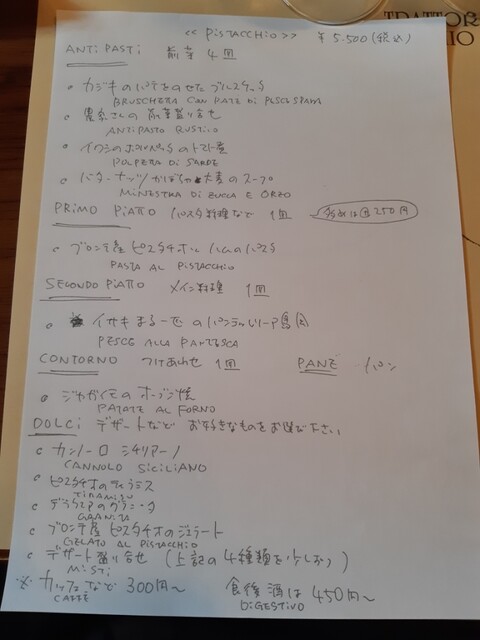 TRATTOR
<< PISTACCHIO >> ¥5.500(税込)
ANTIPASTI 前菜 4皿
カジキのパテをのせたブルスケッタ
BRUSCHETTA CON PATE DI PESCE SPADA
農家さんの前菜盛り合せ
ANTIPASTO RUSTICO
イワシのポルペッタのトマト煮
POLPETTA DI SARDE
バターナッツかぼちゃと大麦のスープ
MINESTRA DI ZUCCA E ORZO
PRIMO PIATTO パスタ料理など 1皿 250円
ブロンテ産ピスタチオとハムのパスタ
PASTA AL PISTACCHIO
SECONDO PIATTO メイン料理 1皿
イサキまる一匹のパンテッレリーア島風
PESCE ALLA PANTESCA
CONTORNO つけあわせ 1皿 PANE パン
ジャガイモのオーブン焼
PATATE AL FORNO
DOLCI デザートなど お好きなものをお選び下さい
カンノーロ シチリアーノ
CANNOLO SICILIANO
ピスタチオのティラミス
TIRAMISU
のグラニータ
GRANITA
ブロンテ産ピスタチオのジェラート
GELATO AL PISTACCHIO
デザート盛り合せ (上記の4種類を少しずつ)
MISTI
※ カッフェなど 300円〜 食後酒は 450円〜
CAFFÈ DIGESTIVO